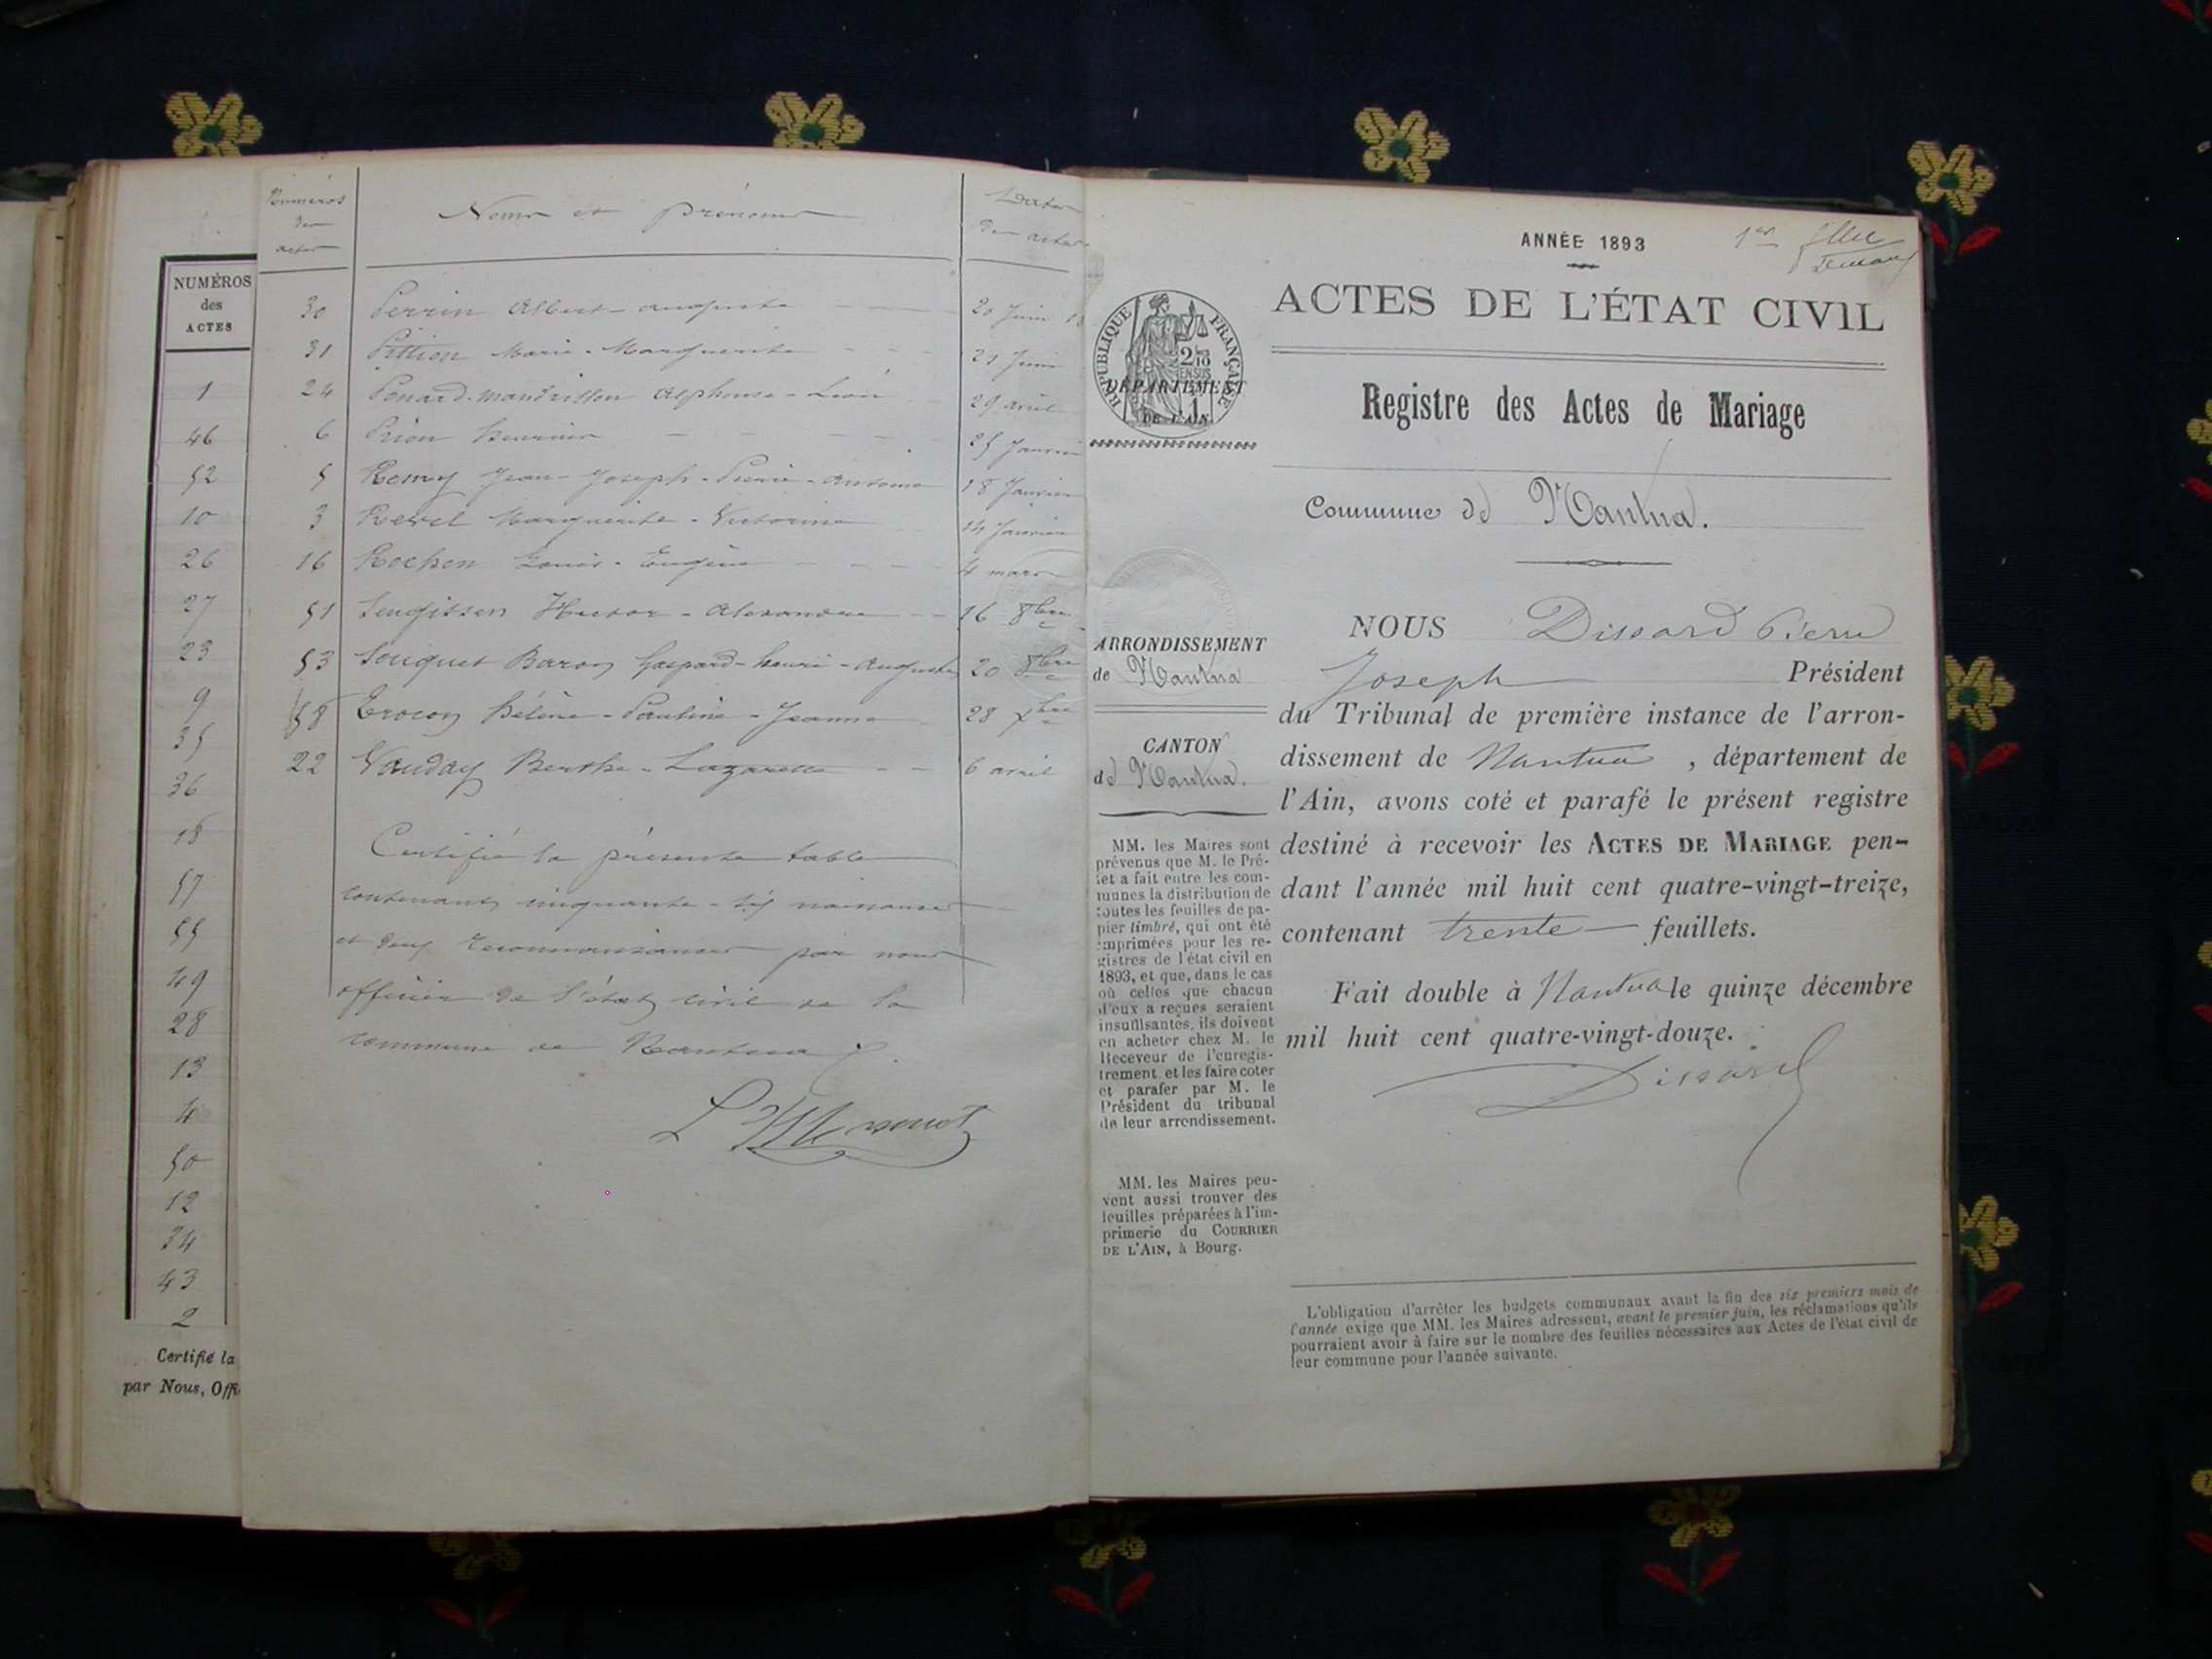 NUMÉROS
des
ACTES
1
46
52
10
26
27
23
9
35
36
18
57
55
49
28
13
4
50
12
34
43
2
Certifié la
par Nous, Offi
Numéros
des
actes
Noms et prénoms
Dates
des actes
30 Perrin Albert-Auguste 20 Juin
31 Pittion Marie-Marguerite 21 Juin
24 Ponard-Mandrillon Alphonse-Léon 29 avril
6 Prion 25 Janvier
5 Remy Jean-Joseph-Pierre-Antoine 18 Janvier
3 Revel Marguerite-Victorine 14 Janvier
16 Rochon Louis-Eugène 4 mars
51 Hector-Alexandre 16 8bre
53 Souquet Baron Gaspard-henri-Auguste 20 8bre
58 Trocon Hélène-Pauline-Jeanne 28 xbre
22 Vauday Berthe-Lazarette 6 avril
Certifié la présente table
contenant cinquante-six naissances
et deux reconnaissances par nous
officier de l'état civil de la
commune de Nantua
ANNÉE 1893
1er
ACTES DE L'ÉTAT CIVIL
RÉPUBLIQUE FRANÇAISE
2/10 EN SUS
DÉPARTEMENT
DE L'AIN
Registre des Actes de Mariage
Commune de Nantua.
ARRONDISSEMENT
de Nantua
CANTON
de Nantua.
MM. les Maires sont
prévenus que M. le Pré-
fet a fait entre les com-
munes la distribution de
toutes les feuilles de pa-
pier timbré, qui ont été
imprimées pour les re-
gistres de l'état civil en
1893, et que, dans le cas
où celles que chacun
d'eux a reçues seraient
insuffisantes, ils doivent
en acheter chez M. le
Receveur de l'enregis-
trement et les faire coter
et parafer par M. le
Président du tribunal
de leur arrondissement.
MM. les Maires peu-
vent aussi trouver des
feuilles préparées à l'im-
primerie du COURRIER
DE L'AIN, à Bourg.
NOUS Dissard Pierre
Joseph Président
du Tribunal de première instance de l'arron-
dissement de Nantua, département de
l'Ain, avons coté et parafé le présent registre
destiné à recevoir les ACTES DE MARIAGE pen-
dant l'année mil huit cent quatre-vingt-treize,
contenant trente feuillets.
Fait double à Nantua le quinze décembre
mil huit cent quatre-vingt-douze.
Dissard
L'obligation d'arrêter les budgets communaux avant la fin des six premiers mois de
l'année exige que MM. les Maires adressent, avant le premier juin, les réclamations qu'ils
pourraient avoir à faire sur le nombre des feuilles nécessaires aux Actes de l'état civil de
leur commune pour l'année suivante.